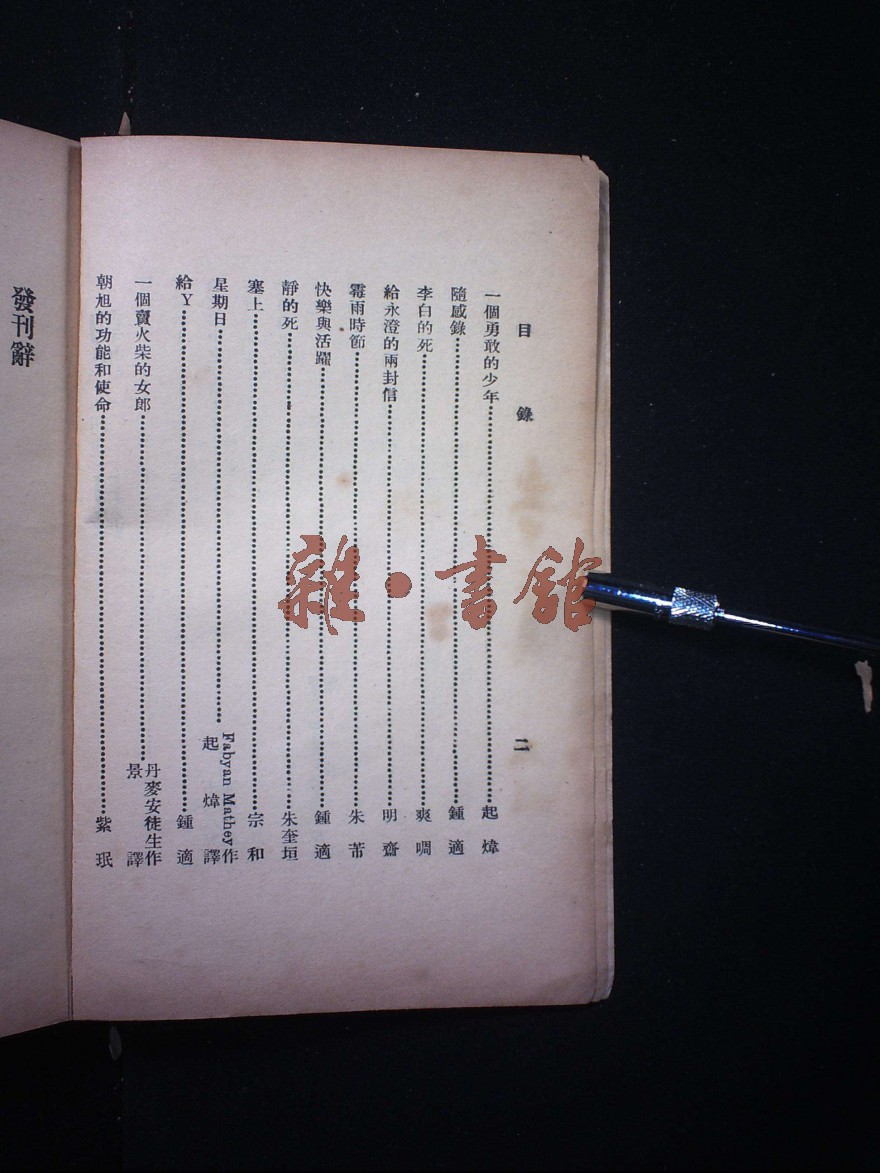 目錄 二
一個勇敢的少年 起煒
隨感錄 鍾適
李白的死 爽啁
給永澄的兩封信 明齋
霉雨時節 朱芾
快樂與活躍 鍾適
靜的死 朱奎垣
塞上 宗和
星期日 Fabyan Mathey作
起煒譯
給Y 鍾適
一個賣火柴的女郎 丹麥安徒生作
景譯
朝旭的功能和使命 紫珉
發刊辭
雜·書館